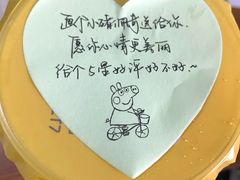 画个小猪佩奇送给你.
愿你心情更美丽
给个5星好评好不好~